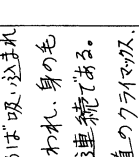 ば吸い込まれ
われ、身の毛
連続である。
のクライマックス、